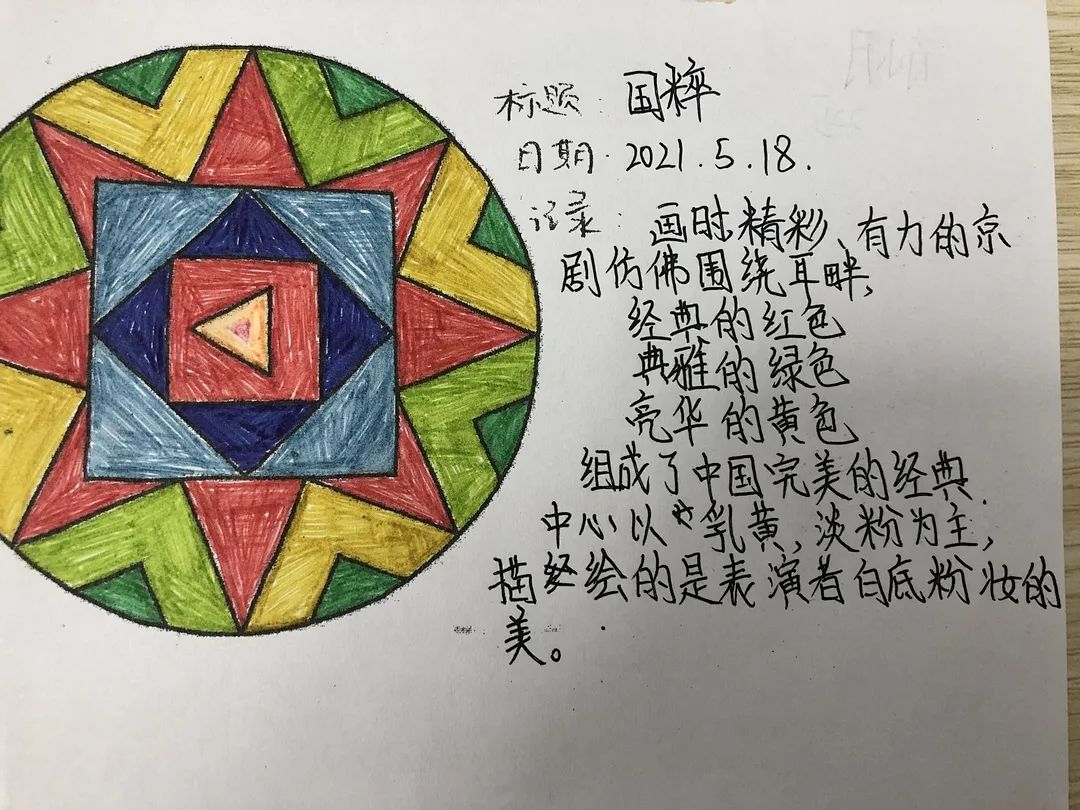 标题：国粹
日期：2021.5.18.
记录：画时精彩、有力的京
剧仿佛围绕耳畔，
经典的红色
典雅的绿色
亮华的黄色
组成了中国完美的经典.
中心以 乳黄，淡粉为主，
描绘的是表演者白底粉妆的
美。